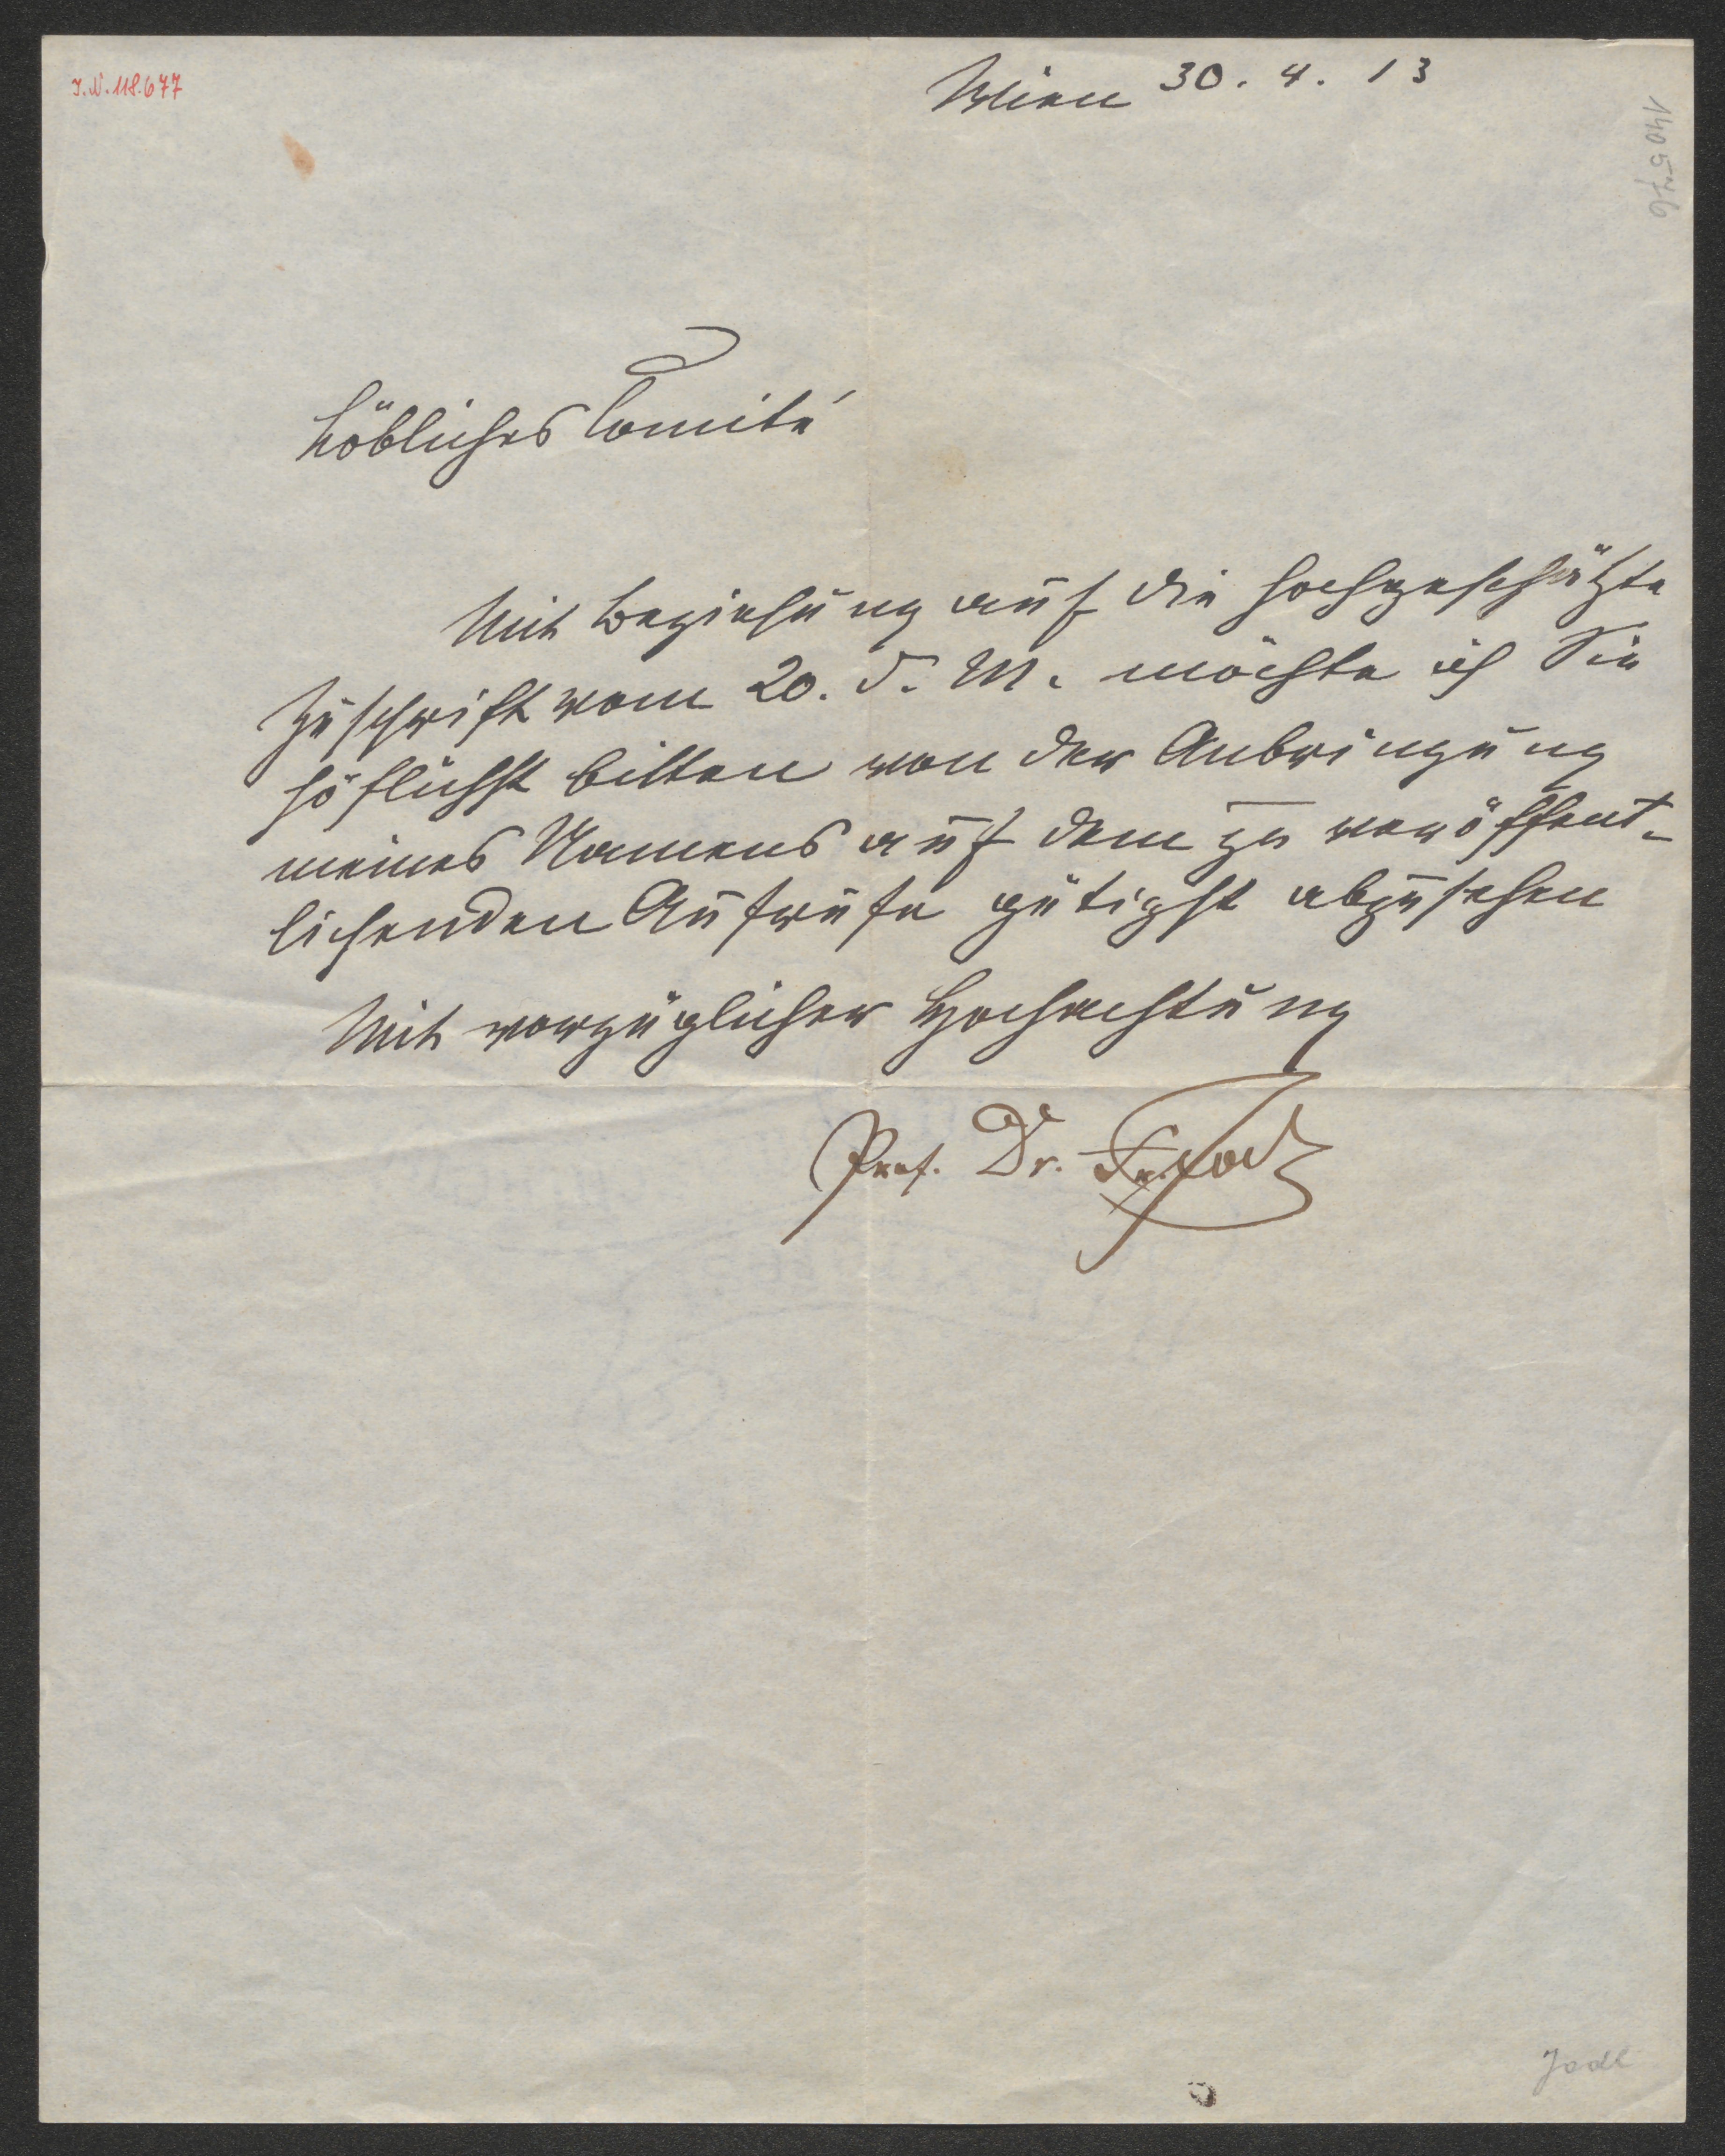 J.N. 118.677
Wien 30. 4. 13
140576
Löbliches Comité
Mit Beziehung auf die hochgeschätzte
Zuschrift vom 20. d. M. möchte ich Sie
höflichst bitten von der Anbringung
meines Namens auf dem zu veröffent-
lichenden Aufrufe gütigst abzusehen
Mit vorzüglicher Hochachtung
Prof. Dr. Fr. Jodl
Jodl